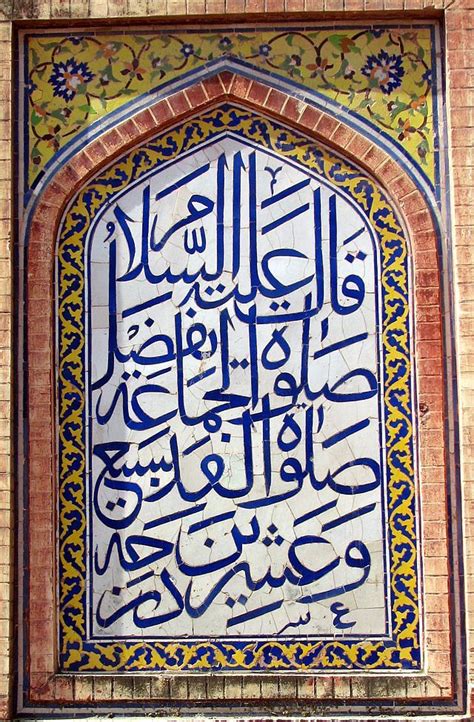 قال عليه السلام
صلوٰة الجماعة تفضل
صلوٰة الفذ بسبع
وعشرين درجة